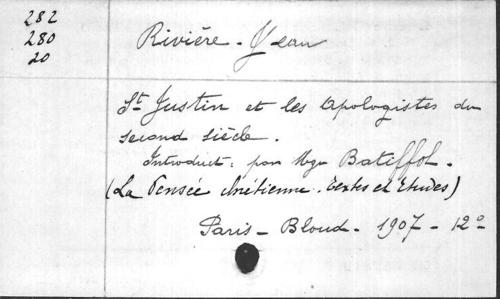 282
280
20
Rivière - Jean
St Justin et les Apologistes du
second siècle.
Introduct: par Mgr Batiffol.
(La Pensée chrétienne. Textes et Etudes)
Paris - Bloud - 1907 - 12º